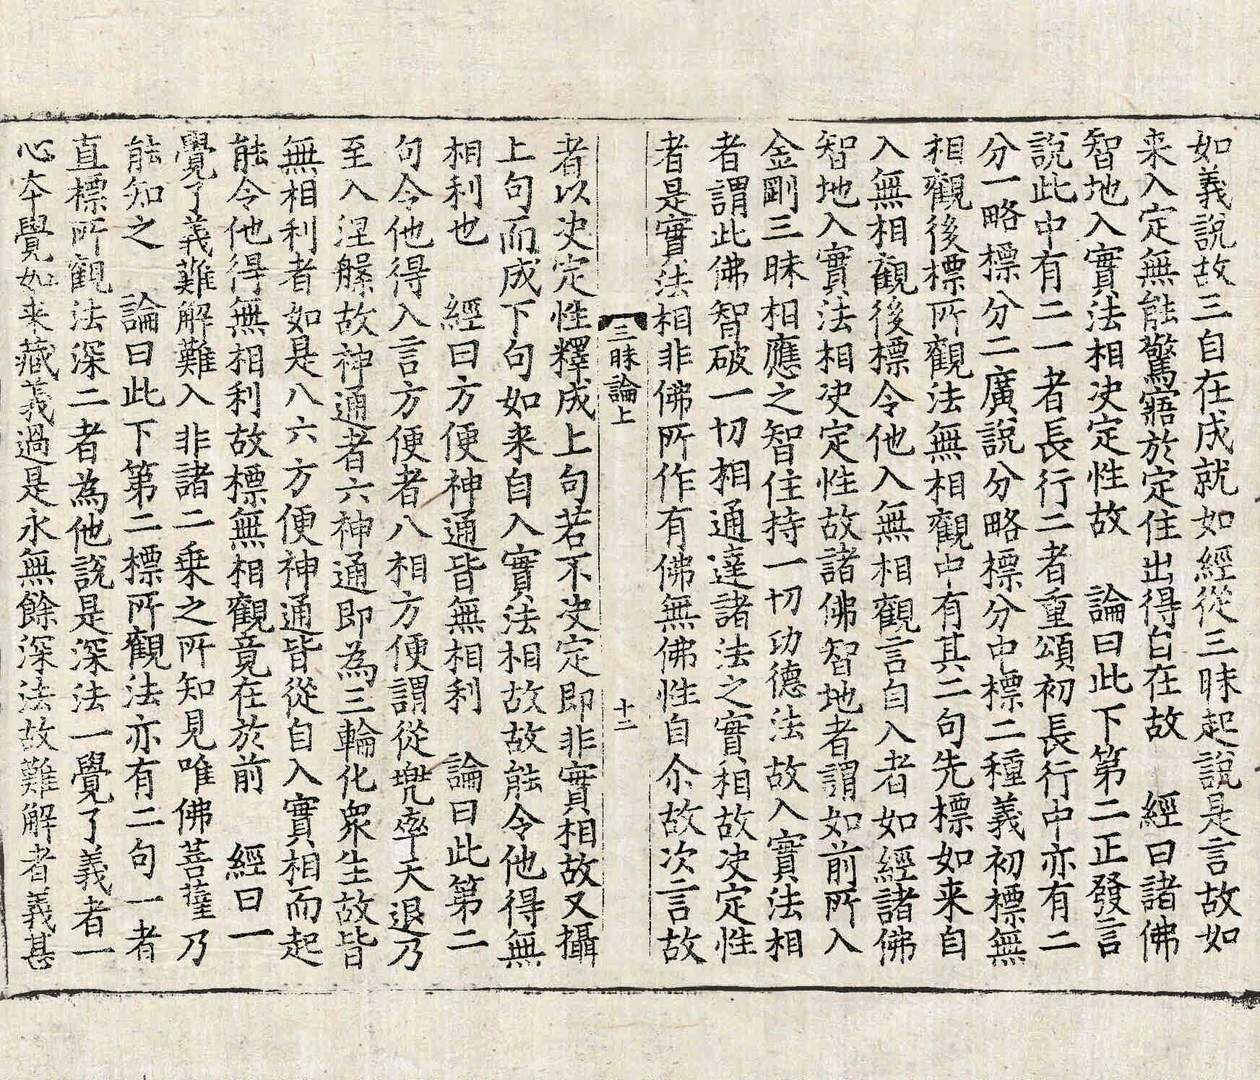 如義說故三自在成就如經從三昧起說是言故如
来入定無能驚寤於定住出得自在故　經曰諸佛
智地入實法相决定性故　論曰此下第二正發言
說此中有二一者長行二者重頌初長行中亦有二
分一略標分二廣說分略標分中標二種義初標無
相觀後標所觀法無相觀中有其二句先標如来自
入無相觀後標令他入無相觀言自入者如經諸佛
智地入實法相决定性故諸佛智地者謂如前所入
金剛三昧相應之智住持一切功德法故入實法相
者謂此佛智破一切相通達諸法之實相故决定性
者是實法相非佛所作有佛無佛性自尒故次言故
三昧論上　十二
者以决定性釋成上句若不决定即非實相故又攝
上句而成下句如来自入實法相故故能令他得無
相利也　經曰方便神通皆無相利　論曰此第二
句令他得入言方便者八相方便謂從兠率天退乃
至入涅槃故神通者六神通即為三輪化衆生故皆
無相利者如是八六方便神通皆從自入實相而起
能令他得無相利故標無相觀竟在於前　經曰一
覺了義難解難入非諸二乗之所知見唯佛菩薩乃
能知之　論曰此下第二標所觀法亦有二句一者
直標所觀法深二者為他說是深法一覺了義者一
心夲覺如来藏義過是永無餘深法故難解者義甚